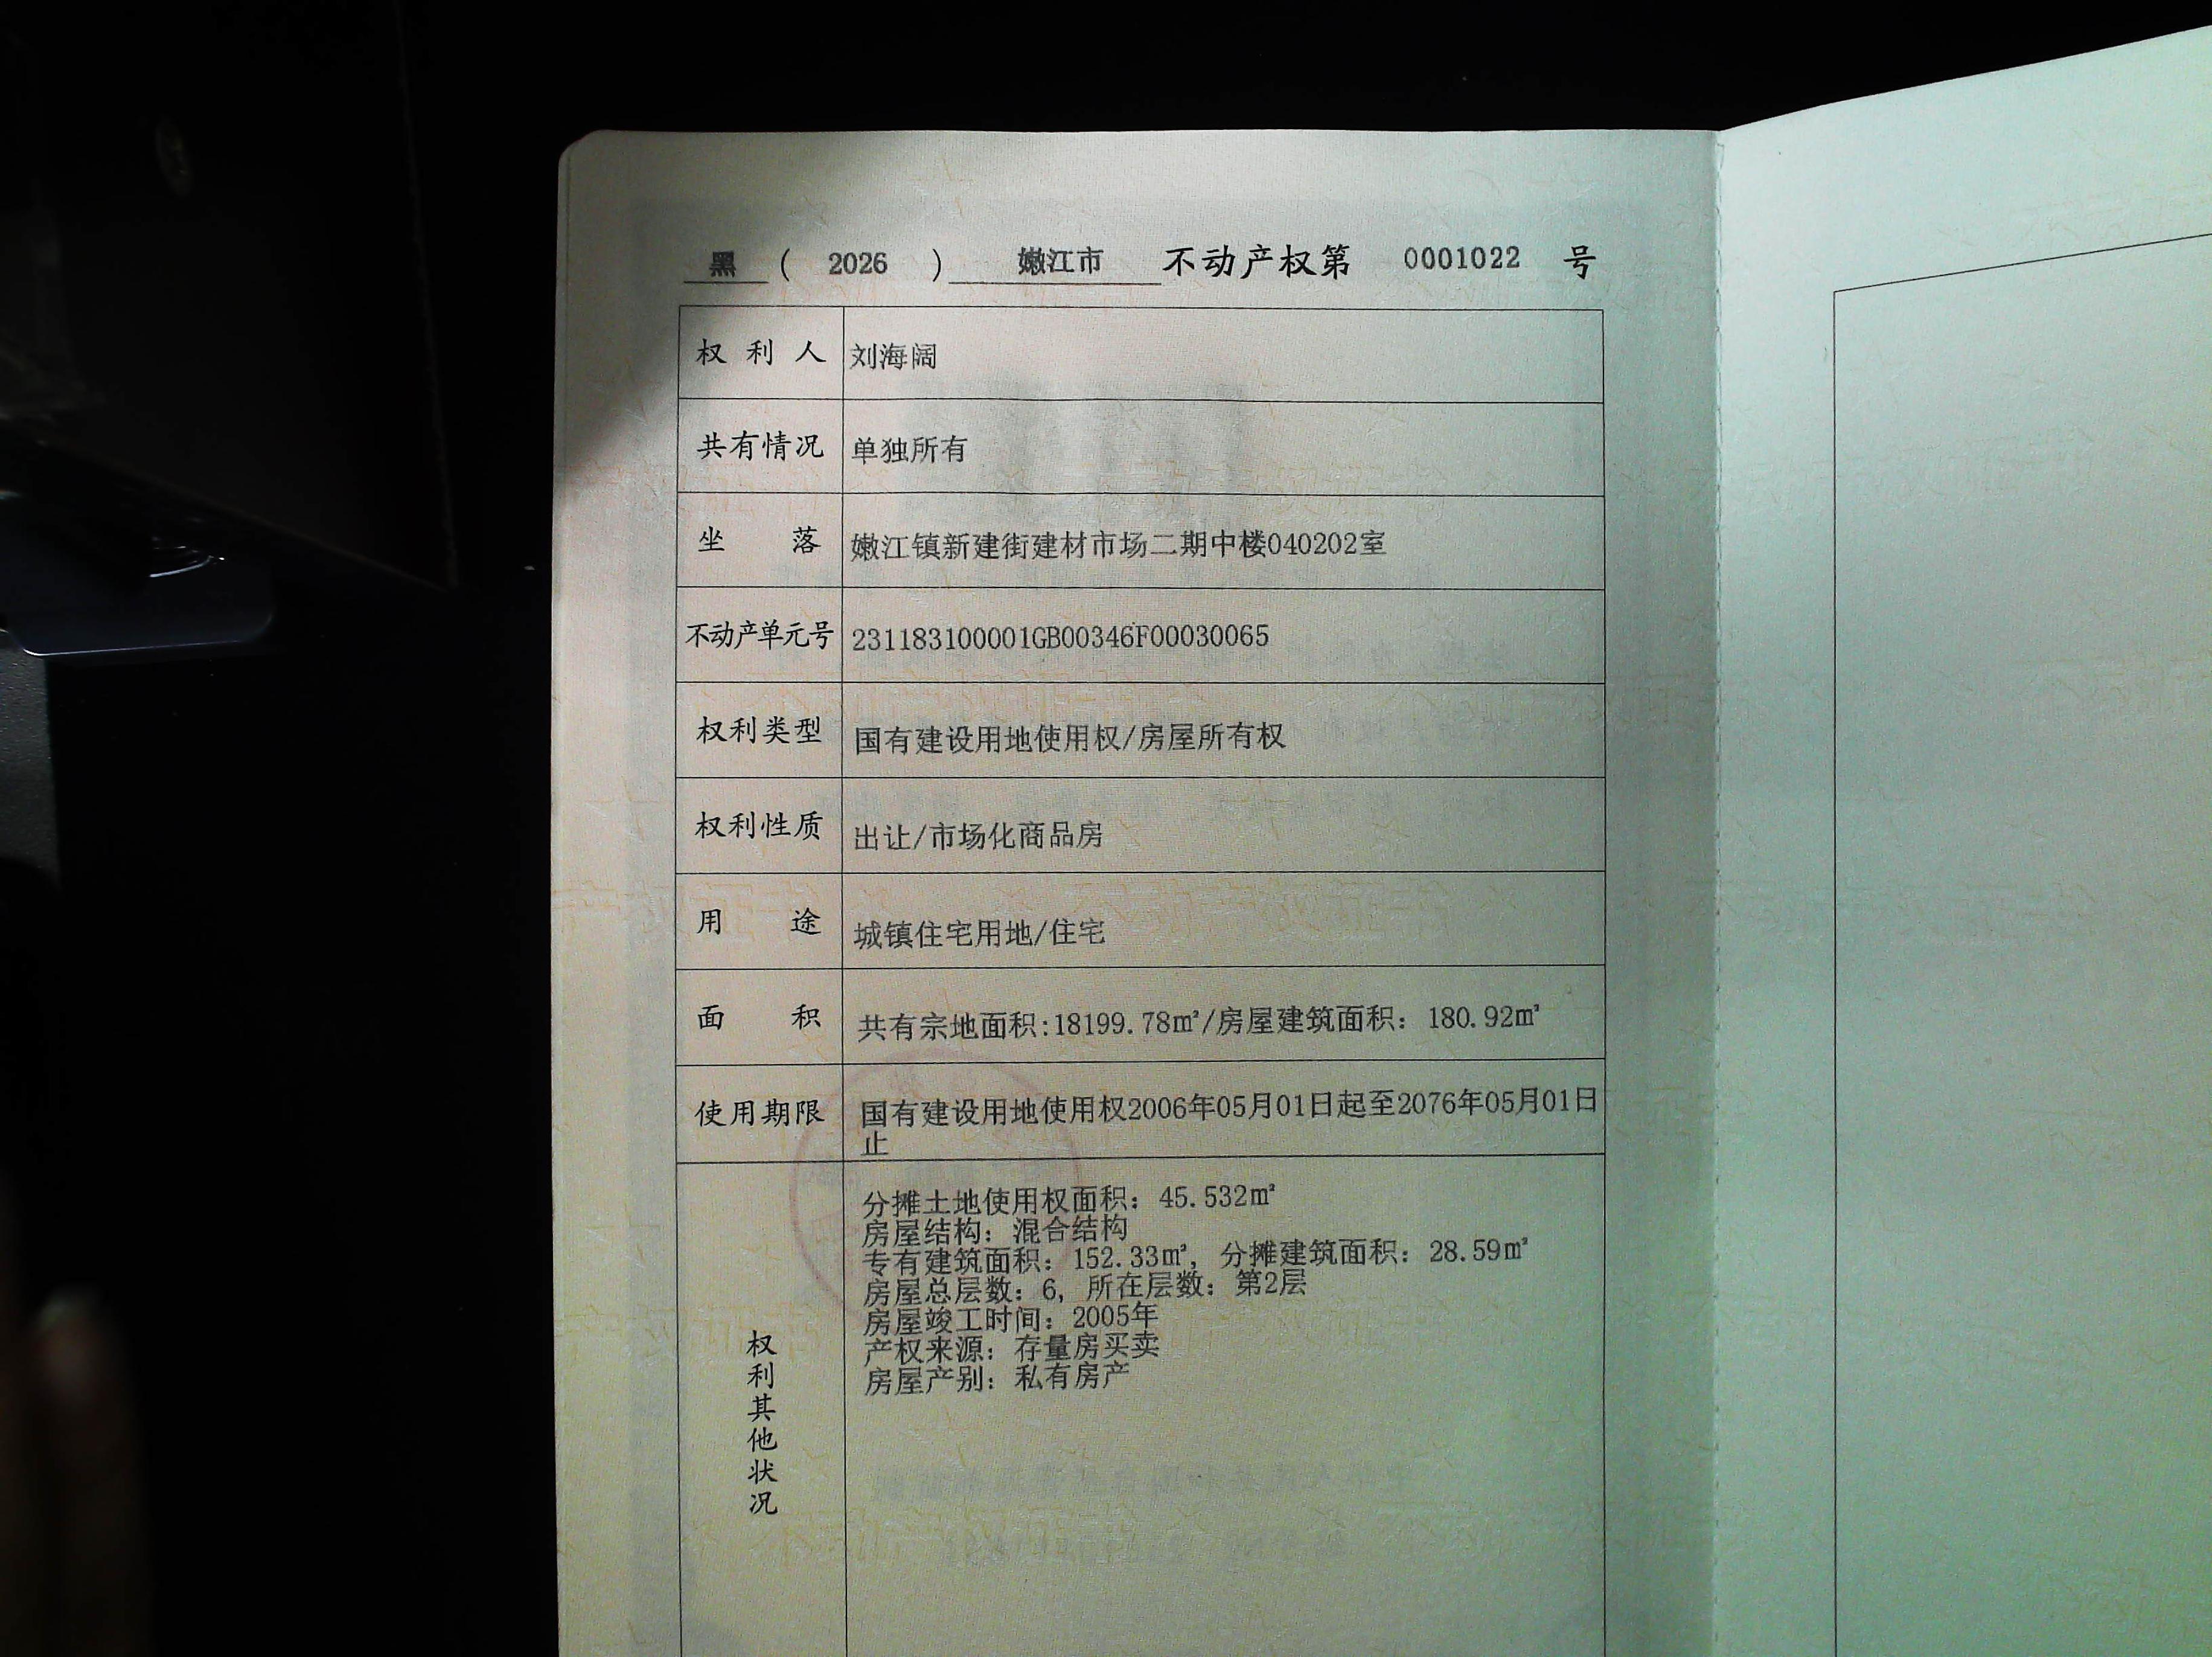 黑 ( 2026 ) 嫩江市 不动产权第 0001022 号
权利人 刘海阔
共有情况 单独所有
坐落 嫩江镇新建街建材市场二期中楼040202室
不动产单元号 231183100001GB00346F00030065
权利类型 国有建设用地使用权/房屋所有权
权利性质 出让/市场化商品房
用途 城镇住宅用地/住宅
面积 共有宗地面积:18199.78㎡/房屋建筑面积：180.92㎡
使用期限 国有建设用地使用权2006年05月01日起至2076年05月01日
止
权利其他状况
分摊土地使用权面积：45.532㎡
房屋结构：混合结构
专有建筑面积：152.33㎡，分摊建筑面积：28.59㎡
房屋总层数：6，所在层数：第2层
房屋竣工时间：2005年
产权来源：存量房买卖
房屋产别：私有房产